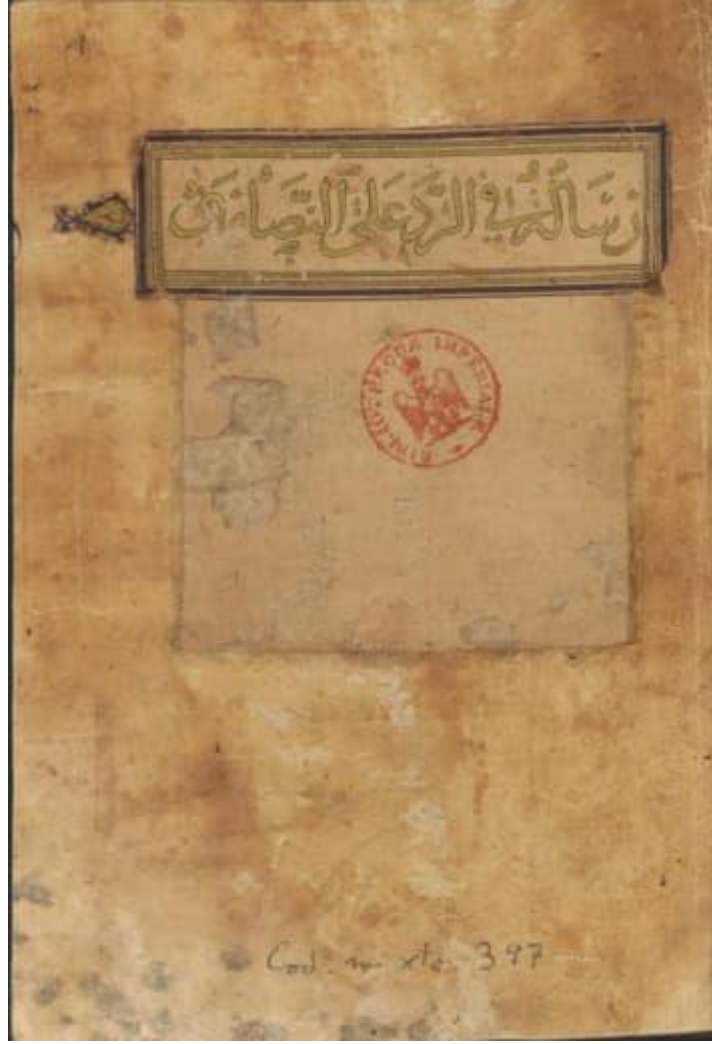 رسالة في الرد على النصارى
BIBLIOTHEQUE IMPERIALE
Cod. mixt. 397